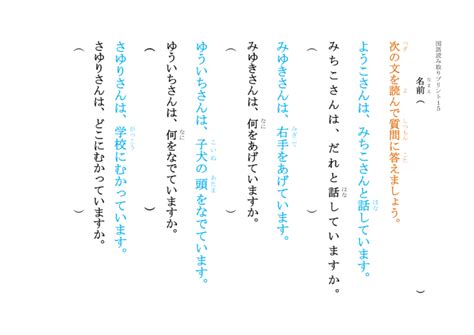 国語読み取りプリント15
名前（　　　　）
次の文を読んで質問に答えましょう。
ようこさんは、みちこさんと話しています。
みちこさんは、だれと話していますか。
（　　　　）
みゆきさんは、右手をあげています。
みゆきさんは、何をあげていますか。
（　　　　）
ゆういちさんは、子犬の頭をなでています。
ゆういちさんは、何をなでていますか。
（　　　　）
さゆりさんは、学校にむかっています。
さゆりさんは、どこにむかっていますか。
（　　　　）